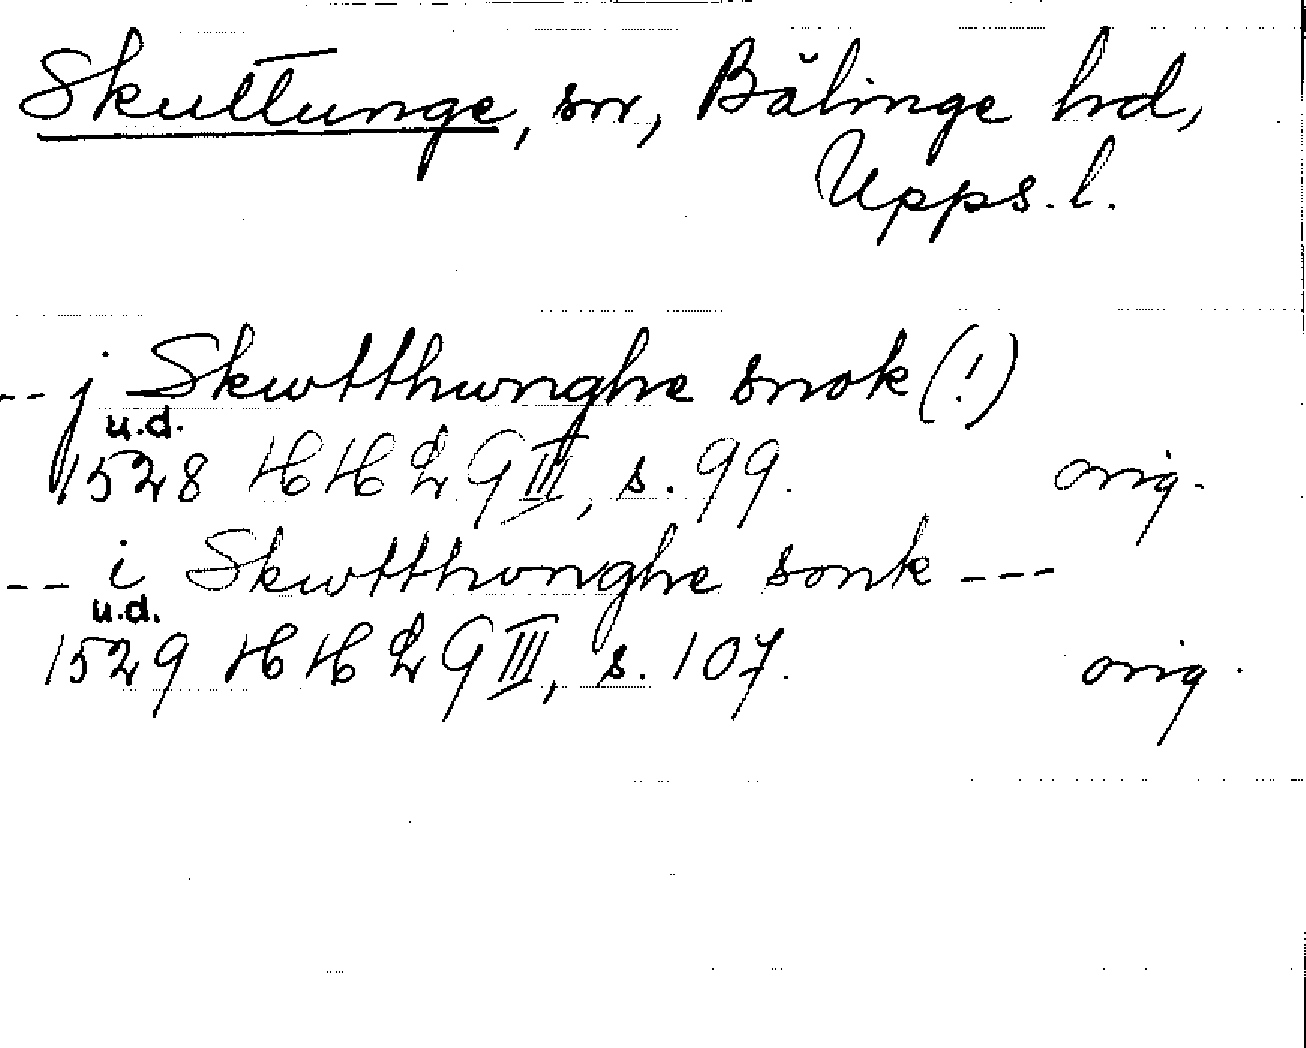 Skuttunge, sn, Bälinge hd,
Upps. l.
-- j Skwtthwnghe snok (!)
u.d.
1528 HH L 9 III, s. 99. orig.
-- i Skwtthvnghe sonk ---
u.d.
1529 HH L 9 III, s. 107. orig.